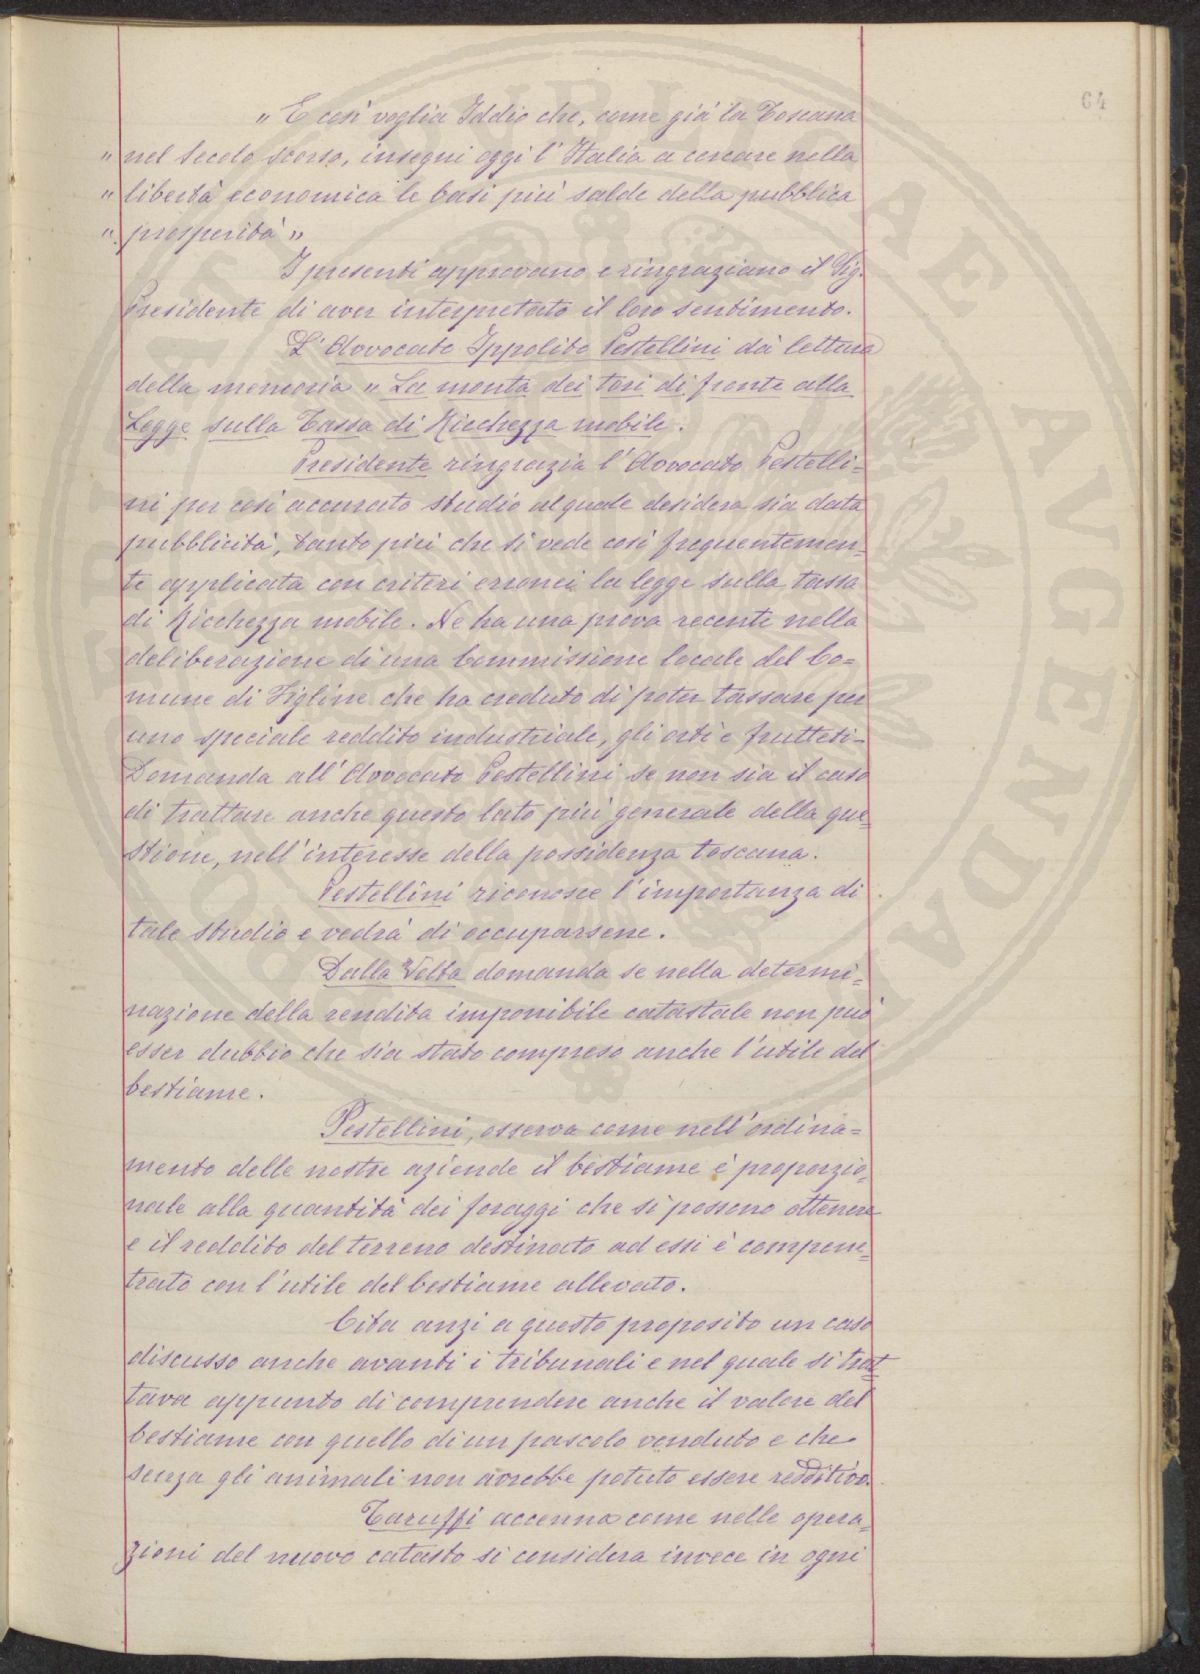 64
„ E così voglia Iddio che, come già la Toscana
„ nel secolo scorso, insegni oggi l'Italia a cercare nella
„ libertà economica le basi più salde della pubblica
„ prosperità „
I presenti approvano e ringraziano il Sig.
Presidente di aver interpretato il loro sentimento.
L'Avvocato Ippolito Pestellini dà lettura
della memoria „ La monta dei tori di fronte alla
Legge sulla Tassa di Ricchezza mobile.
Presidente ringrazia l'Avvocato Pestelli=
ni per così accurato studio al quale desidera sia data
pubblicità, tanto più che si vede così frequentemen=
te applicata con criteri erronei la legge sulla tassa
di Ricchezza mobile. Ne ha una prova recente nella
deliberazione di una Commissione locale del Co=
mune di Figline che ha creduto di poter tassare per
uno speciale reddito industriale, gli orti e frutteti-
Domanda all'Avvocato Pestellini se non sia il caso
di trattare anche questo lato più generale della que=
stione, nell'interesse della possidenza toscana.
Pestellini riconosce l'importanza di
tale studio e vedrà di occuparsene.
Dalla Volta domanda se nella determi=
nazione della rendita imponibile catastale non può
esser dubbio che sia stato compreso anche l'utile del
bestiame.
Pestellini, osserva come nell'ordina=
mento delle nostre aziende il bestiame è proporzio=
nale alla quantità dei foraggi che si possono ottenere
e il reddito del terreno destinato ad essi è compene=
trato con l'utile del bestiame allevato.
Cita anzi a questo proposito un caso
discusso anche avanti i tribunali e nel quale si trat=
tava appunto di comprendere anche il valore del
bestiame con quello di un pascolo venduto e che
senza gli animali non avrebbe potuto essere redditivo.
Taruffi accenna come nelle opera=
zioni del nuovo catasto si considera invece in ogni
PROSPERITATI PUBLICAE AVGENDAE